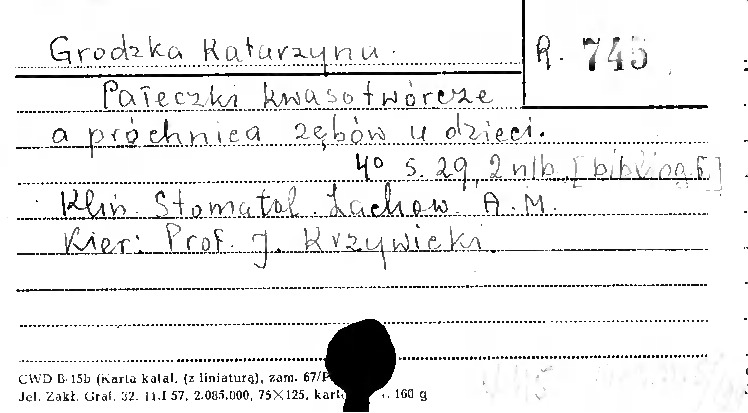 Grodzka Katarzyna.
R. 745
Pałeczki kwasotwórcze
a próchnica zębów u dzieci.
4° s. 29, 2 nlb. [bibliogr.]
Klin. Stomatol. Zachow. A. M.
Kier: Prof. J. Krzywicki.
CWD B-15b (Karta katal. (z liniaturą), zam. 67/P
Jel. Zakł. Graf. 32. 11.I 57, 2.085.000, 75×125, 160 g